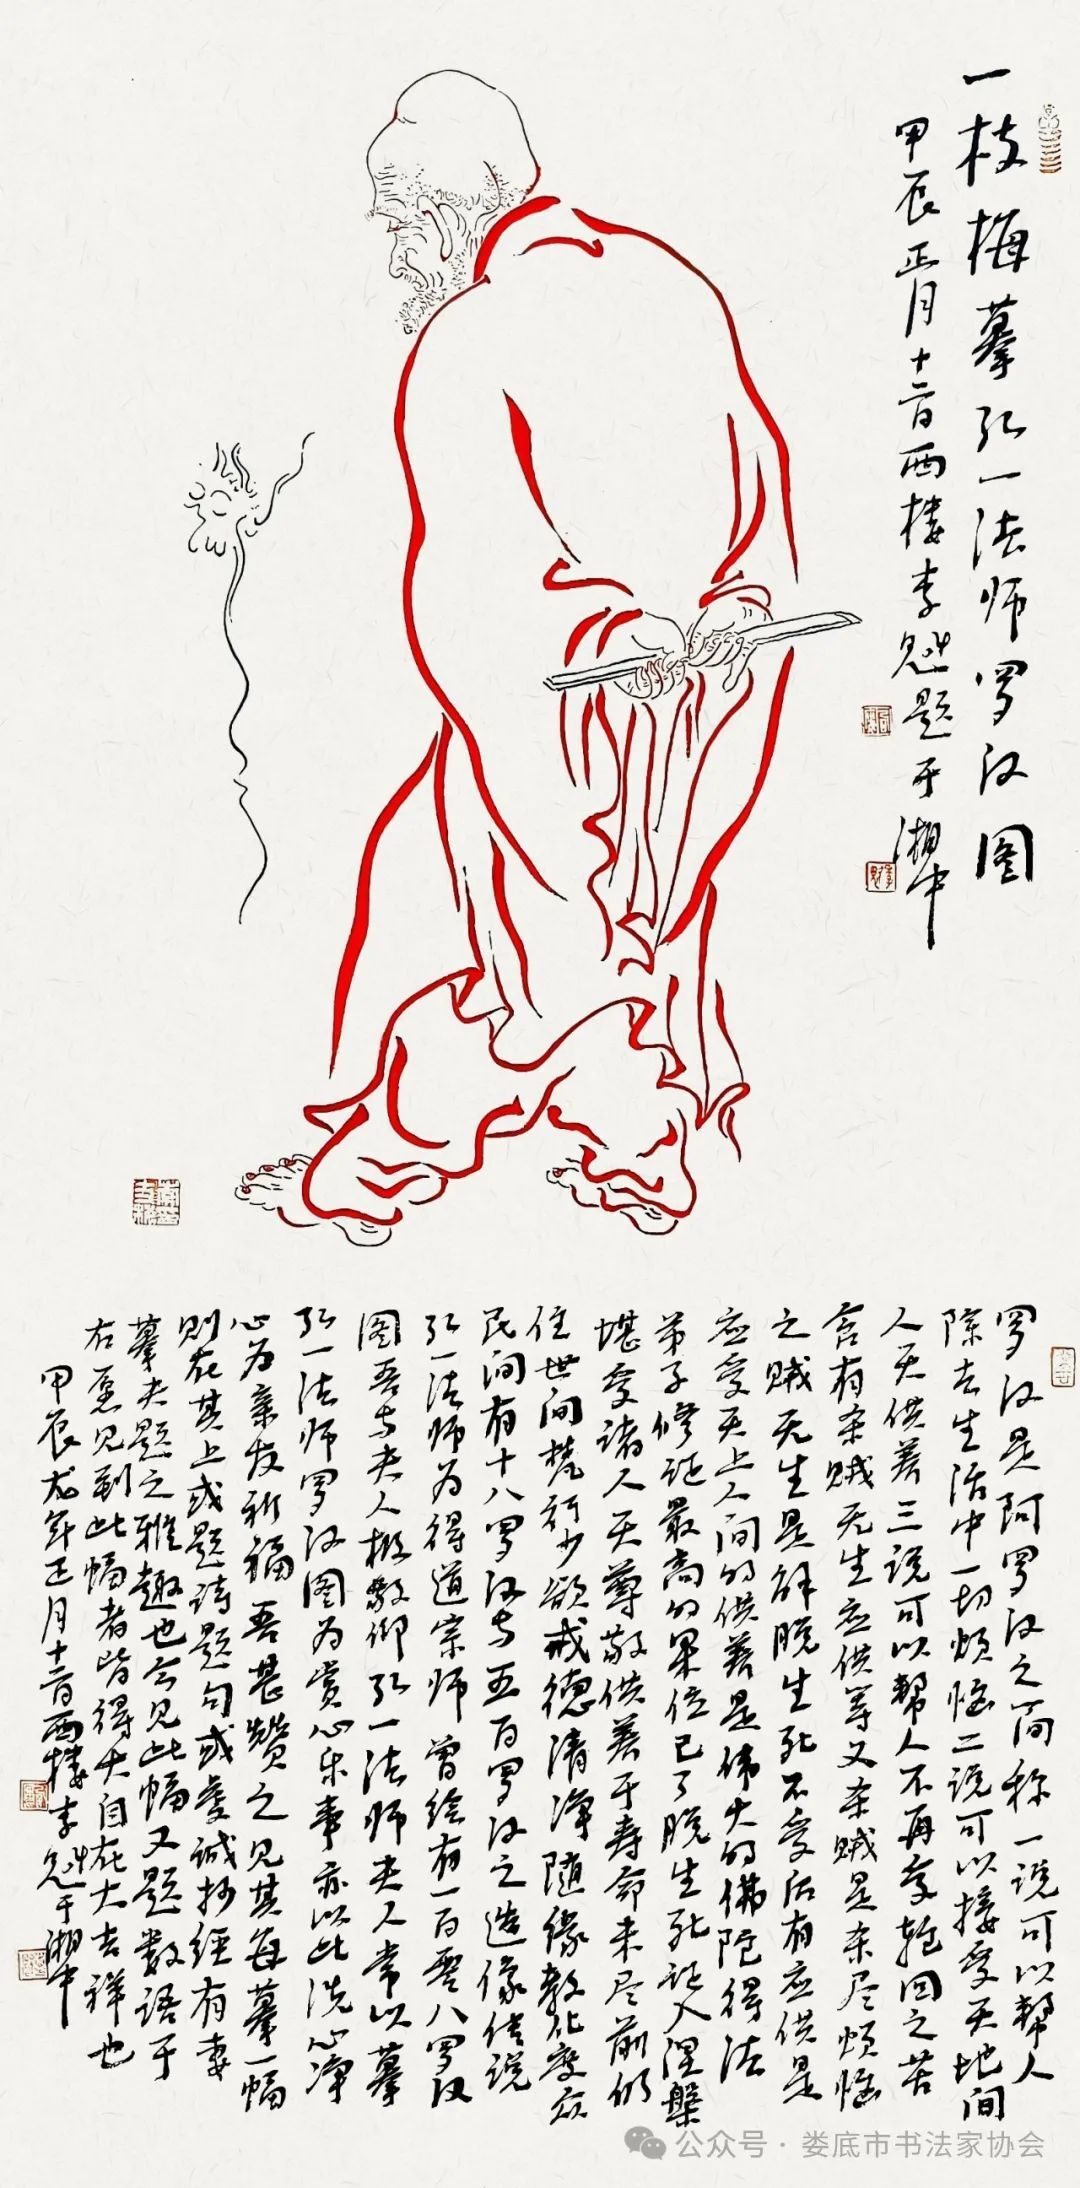 一枝梅摹弘一法师罗汉图
甲辰正月十二日西楼李魁题于湘中
罗汉是阿罗汉之简称一说可以帮人
除去生活中一切烦恼二说可以接受天地间
人天供养三说可以帮人不再受轮回之苦
含有杀贼无生应供等义杀贼是杀尽烦恼
之贼无生是解脱生死不受后有应供是
应受天上人间的供养是伟大的佛陀得法
弟子修证最高的果位已了脱生死证入涅槃
堪受诸人天尊敬供养于寿命未尽前仍
住世间梵行少欲戒德清净随缘教化度众
民间有十八罗汉与五百罗汉之造像传说
弘一法师为得道宗师曾绘有一百零八罗汉
图吾与夫人极敬仰弘一法师夫人常以摹
弘一法师罗汉图为赏心乐事亦以此洗心净
心为亲友祈福吾甚赞之见其每摹一幅
则在其上或题诗题句或虔诚抄经有妻
摹夫题之雅趣也今见此幅又题数语于
右愿见到此幅者皆得大自在大吉祥也
甲辰龙年正月十二日西楼李魁于湘中
公众号·娄底市书法家协会